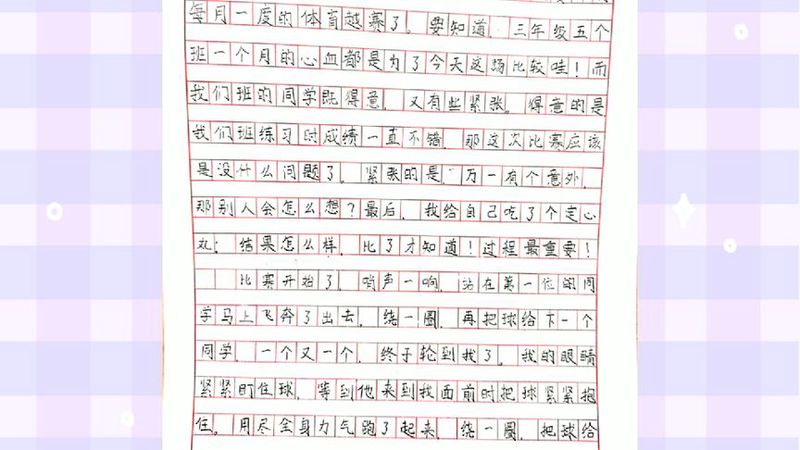 每月一度的体育越赛了。要知道，三年级五个
班一个月的心血都是为了今天这场比较哇！而
我们班的同学既得意，又有些紧张。得意的是
我们班练习时成绩一直不错，那这次比赛应该
是没什么问题了。紧张的是，万一有个意外，
那别人会怎么想？最后，我给自己吃了个定心
丸：结果怎么样，比了才知道！过程最重要！
比赛开始了。哨声一响，站在第一位的同
学马上飞奔了出去，绕一圈，再把球给下一个
同学。一个又一个，终于轮到我了。我的眼睛
紧紧盯住球，等到他来到我面前时把球紧紧抱
住，用尽全身力气跑了起来，绕一圈，把球给